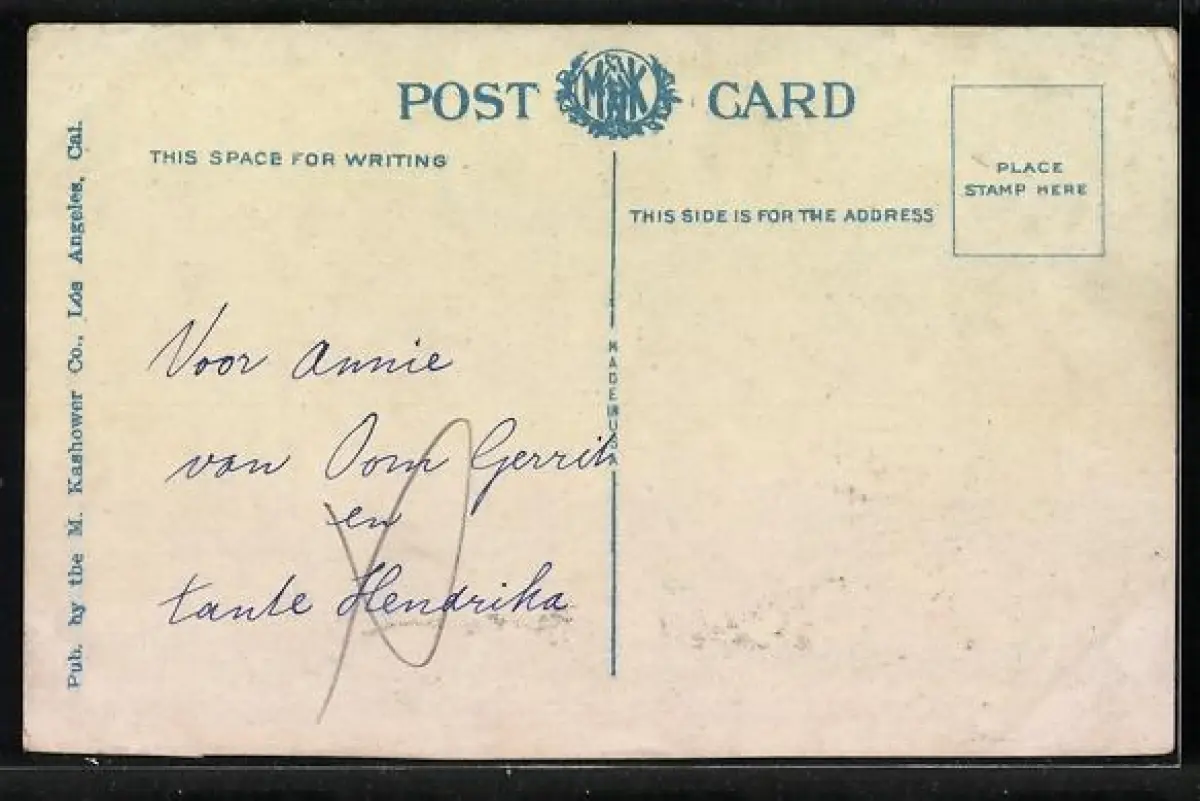 POST CARD
THIS SPACE FOR WRITING
THIS SIDE IS FOR THE ADDRESS
PLACE
STAMP HERE
Pub. by the M. Kashower Co., Los Angeles, Cal.
MADE IN USA
Voor Annie
van Oom Gerrit
en
tante Hendrika